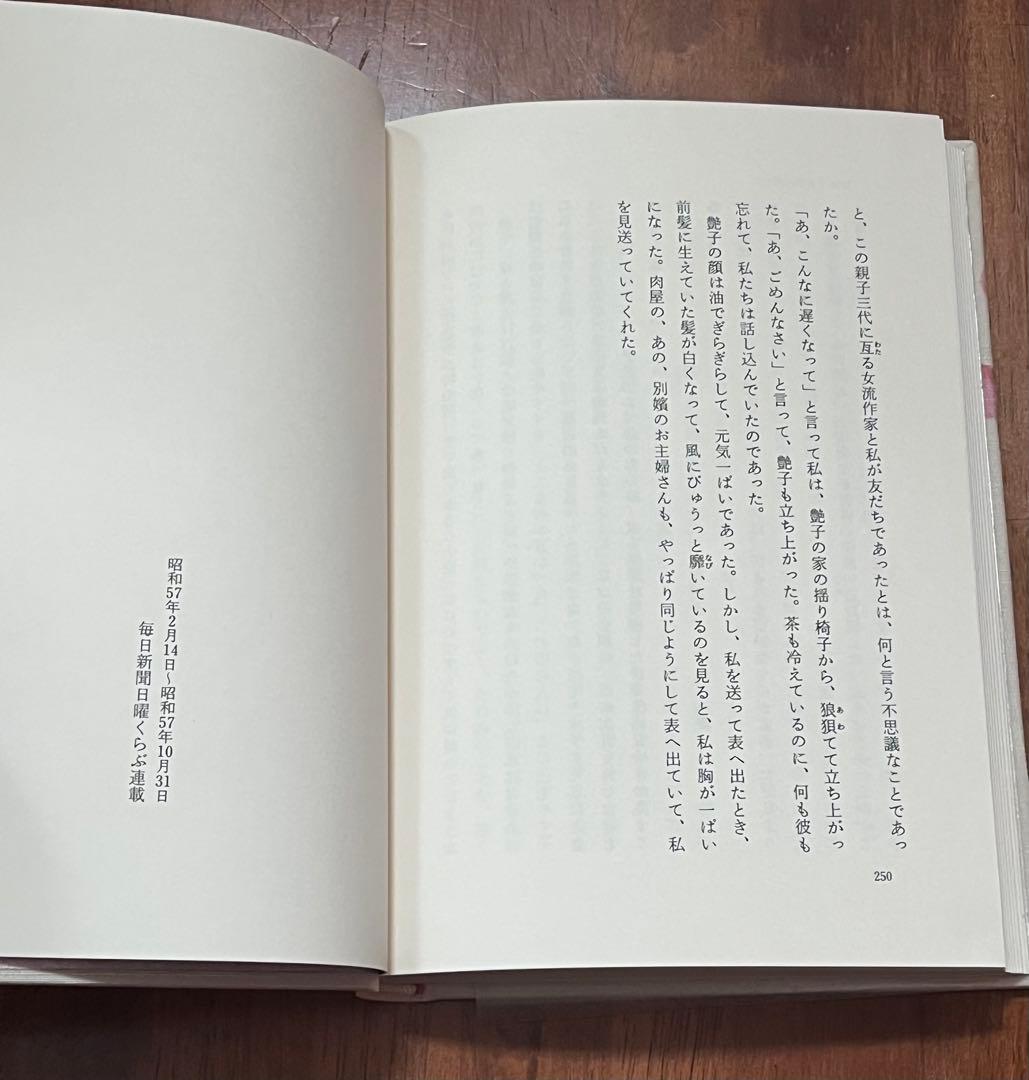 と、この親子三代に亙る女流作家と私が友だちであったとは、何と言う不思議なことであっ
たか。
「あ、こんなに遅くなって」と言って私は、艶子の家の揺り椅子から、狼狽てて立ち上がっ
た。「あ、ごめんなさい」と言って、艶子も立ち上がった。茶も冷えているのに、何も彼も
忘れて、私たちは話し込んでいたのであった。
艶子の顔は油でぎらぎらして、元気一ぱいであった。しかし、私を送って表へ出たとき、
前髪に生えていた髪が白くなって、風にびゅうっと靡いているのを見ると、私は胸が一ぱい
になった。肉屋の、あの、別嬪のお主婦さんも、やっぱり同じようにして表へ出ていて、私
を見送っていてくれた。
250
昭和57年2月14日～昭和57年10月31日
毎日新聞日曜くらぶ連載